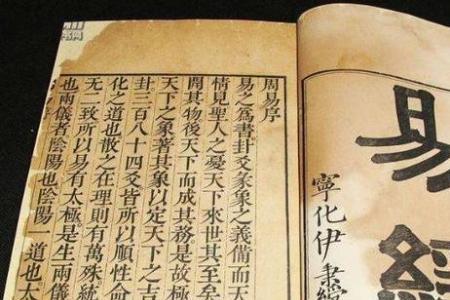 易經
寧化伊
周易序
易之爲書卦爻彖象之義備而天
情見聖人之憂天下來世其至矣
開其物後天下而成其務是故極
天下之象著其象以定天下之吉
卦三百八十四爻皆所以順性命
化之道也散之在理則有萬殊統
无二致所以易有太極是生兩儀
也兩儀者陰陽也陰陽一道也太